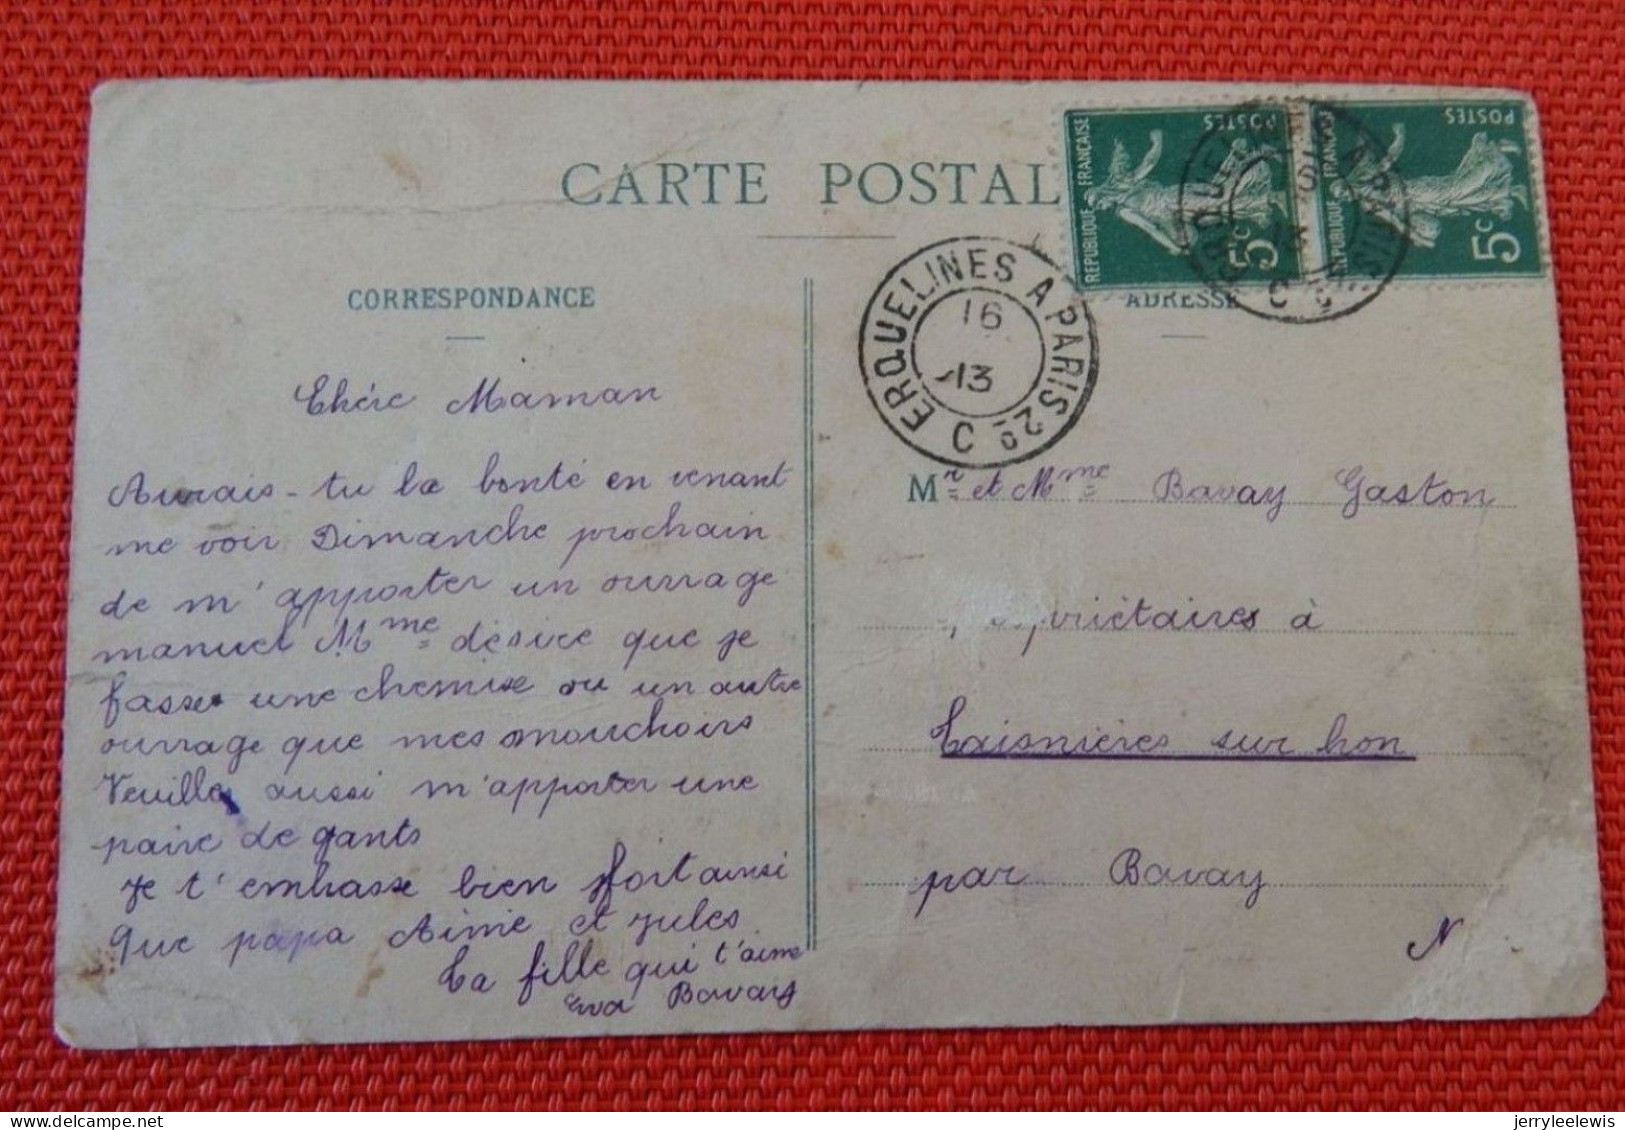 CARTE POSTAL
CORRESPONDANCE
ADRESSE
REPUBLIQUE FRANÇAISE
POSTES
5c
REPUBLIQUE FRANÇAISE
POSTES
5c
ERQUELINES A PARIS 2º
16
13
C
Chère Maman
Aurais-tu la bonté en venant
me voir Dimanche prochain
de m'apporter un ouvrage
manuel Mme désire que je
fasse une chemise ou un autre
ouvrage que mes mouchoirs
Veuilles aussi m'apporter une
paire de gants
Je t'embrasse bien fort ainsi
que papa Aimé et Jules
Ta fille qui t'aime
Eva Bavay
Mr et Mme Bavay Gaston
propriétaires à
Taisnières sur hon
par Bavay
N
delcampe.net
jerryleelewis